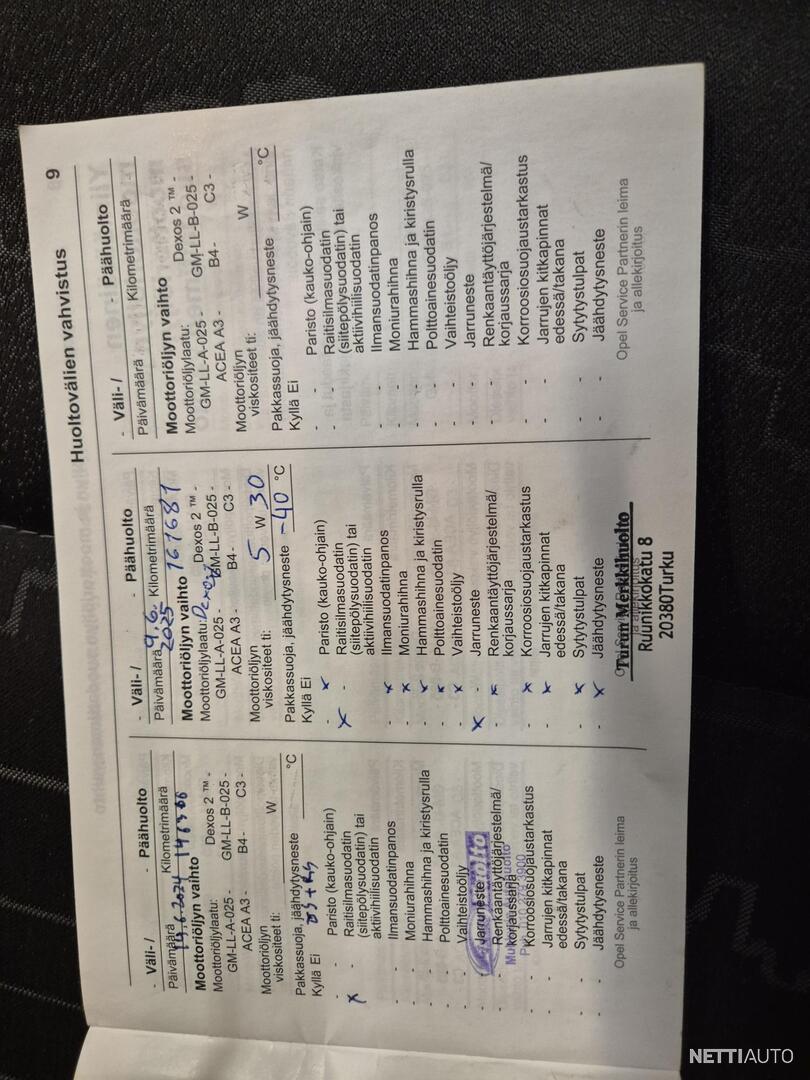 Huoltovälien vahvistus
9
- Väli- / - Päähuolto
Päivämäärä Kilometrimäärä
14.6.2024 146366
Moottoriöljyn vaihto
Moottoriöljylaatu: Dexos 2 ™ -
GM-LL-A-025 - GM-LL-B-025 -
ACEA A3 - B4 - C3 -
Moottoriöljyn
viskositeet ti: W
Pakkassuoja, jäähdytysneste °C
Kyllä Ei
- - Paristo (kauko-ohjain)
x - Raitisilmasuodatin
(siitepölysuodatin) tai
aktiivihiilisuodatin
- - Ilmansuodatinpanos
- - Moniurahihna
- - Hammashihna ja kiristysrulla
- - Polttoainesuodatin
- - Vaihteistoöljy
- - Jarruneste
- - Renkaantäyttöjärjestelmä/
korjaussarja
- - Korroosiosuojaustarkastus
- - Jarrujen kitkapinnat
edessä/takana
- - Sytytystulpat
- - Jäähdytysneste
Opel Service Partnerin leima
ja allekirjoitus
- Väli- / - Päähuolto
Päivämäärä Kilometrimäärä
9.6.
2025 161681
Moottoriöljyn vaihto
Moottoriöljylaatu: Dexos 2 ™ -
GM-LL-A-025 - GM-LL-B-025 -
ACEA A3 - B4 - C3 -
Moottoriöljyn
viskositeet ti: 5 W 30
Pakkassuoja, jäähdytysneste -40 °C
Kyllä Ei
- x Paristo (kauko-ohjain)
x - Raitisilmasuodatin
(siitepölysuodatin) tai
aktiivihiilisuodatin
- x Ilmansuodatinpanos
- x Moniurahihna
- x Hammashihna ja kiristysrulla
- x Polttoainesuodatin
- x Vaihteistoöljy
x - Jarruneste
- x Renkaantäyttöjärjestelmä/
korjaussarja
- x Korroosiosuojaustarkastus
- x Jarrujen kitkapinnat
edessä/takana
- x Sytytystulpat
- x Jäähdytysneste
Turun Merkkihuolto
ja allekirjoitus
Ruunikkokatu 8
20380Turku
- Väli- / - Päähuolto
Päivämäärä Kilometrimäärä
Moottoriöljyn vaihto
Moottoriöljylaatu: Dexos 2 ™ -
GM-LL-A-025 - GM-LL-B-025 -
ACEA A3 - B4 - C3 -
Moottoriöljyn
viskositeet ti: W
Pakkassuoja, jäähdytysneste °C
Kyllä Ei
- - Paristo (kauko-ohjain)
- - Raitisilmasuodatin
(siitepölysuodatin) tai
aktiivihiilisuodatin
- - Ilmansuodatinpanos
- - Moniurahihna
- - Hammashihna ja kiristysrulla
- - Polttoainesuodatin
- - Vaihteistoöljy
- - Jarruneste
- - Renkaantäyttöjärjestelmä/
korjaussarja
- - Korroosiosuojaustarkastus
- - Jarrujen kitkapinnat
edessä/takana
- - Sytytystulpat
- - Jäähdytysneste
Opel Service Partnerin leima
ja allekirjoitus
NETTIAUTO